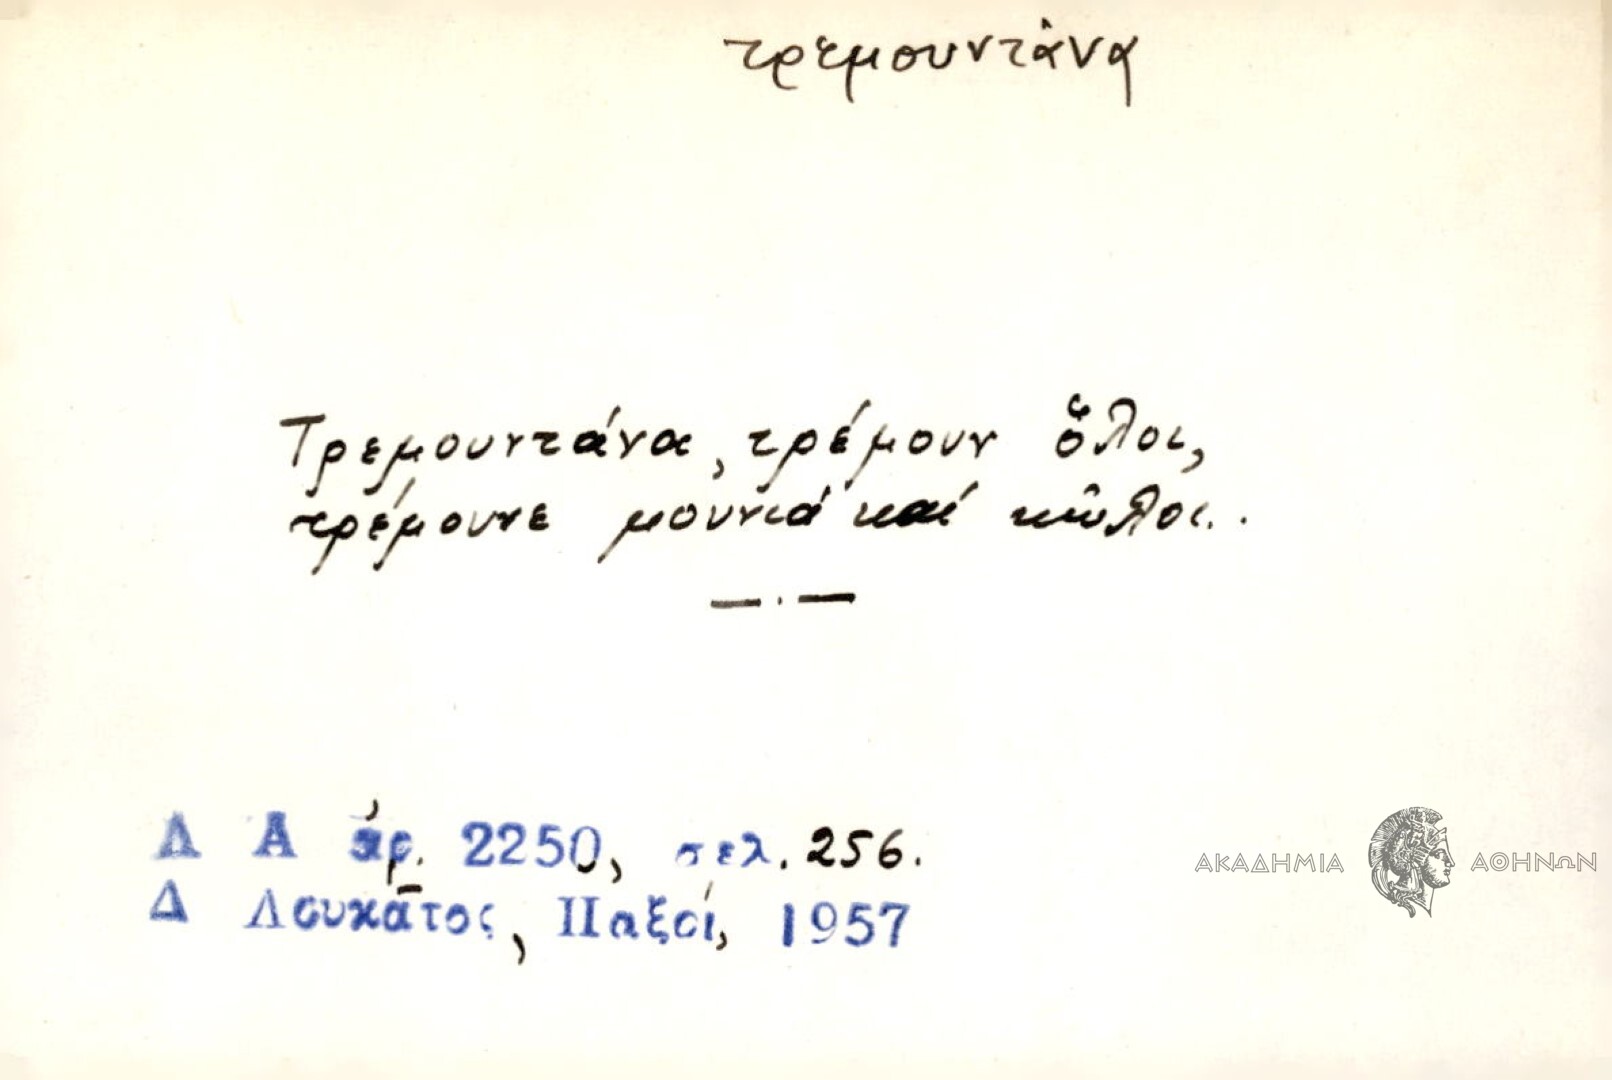 τρεμουντάνα
Τρεμουντάνα, τρέμουν ὅλοι,
τρέμουνε μουνιά καί κῶλοι..
Λ Α ἀρ. 2250, σελ. 256.
Δ Λουκᾶτος, Παξοί, 1957
ΑΚΑΔΗΜΙΑ ΑΘΗΝΩΝ